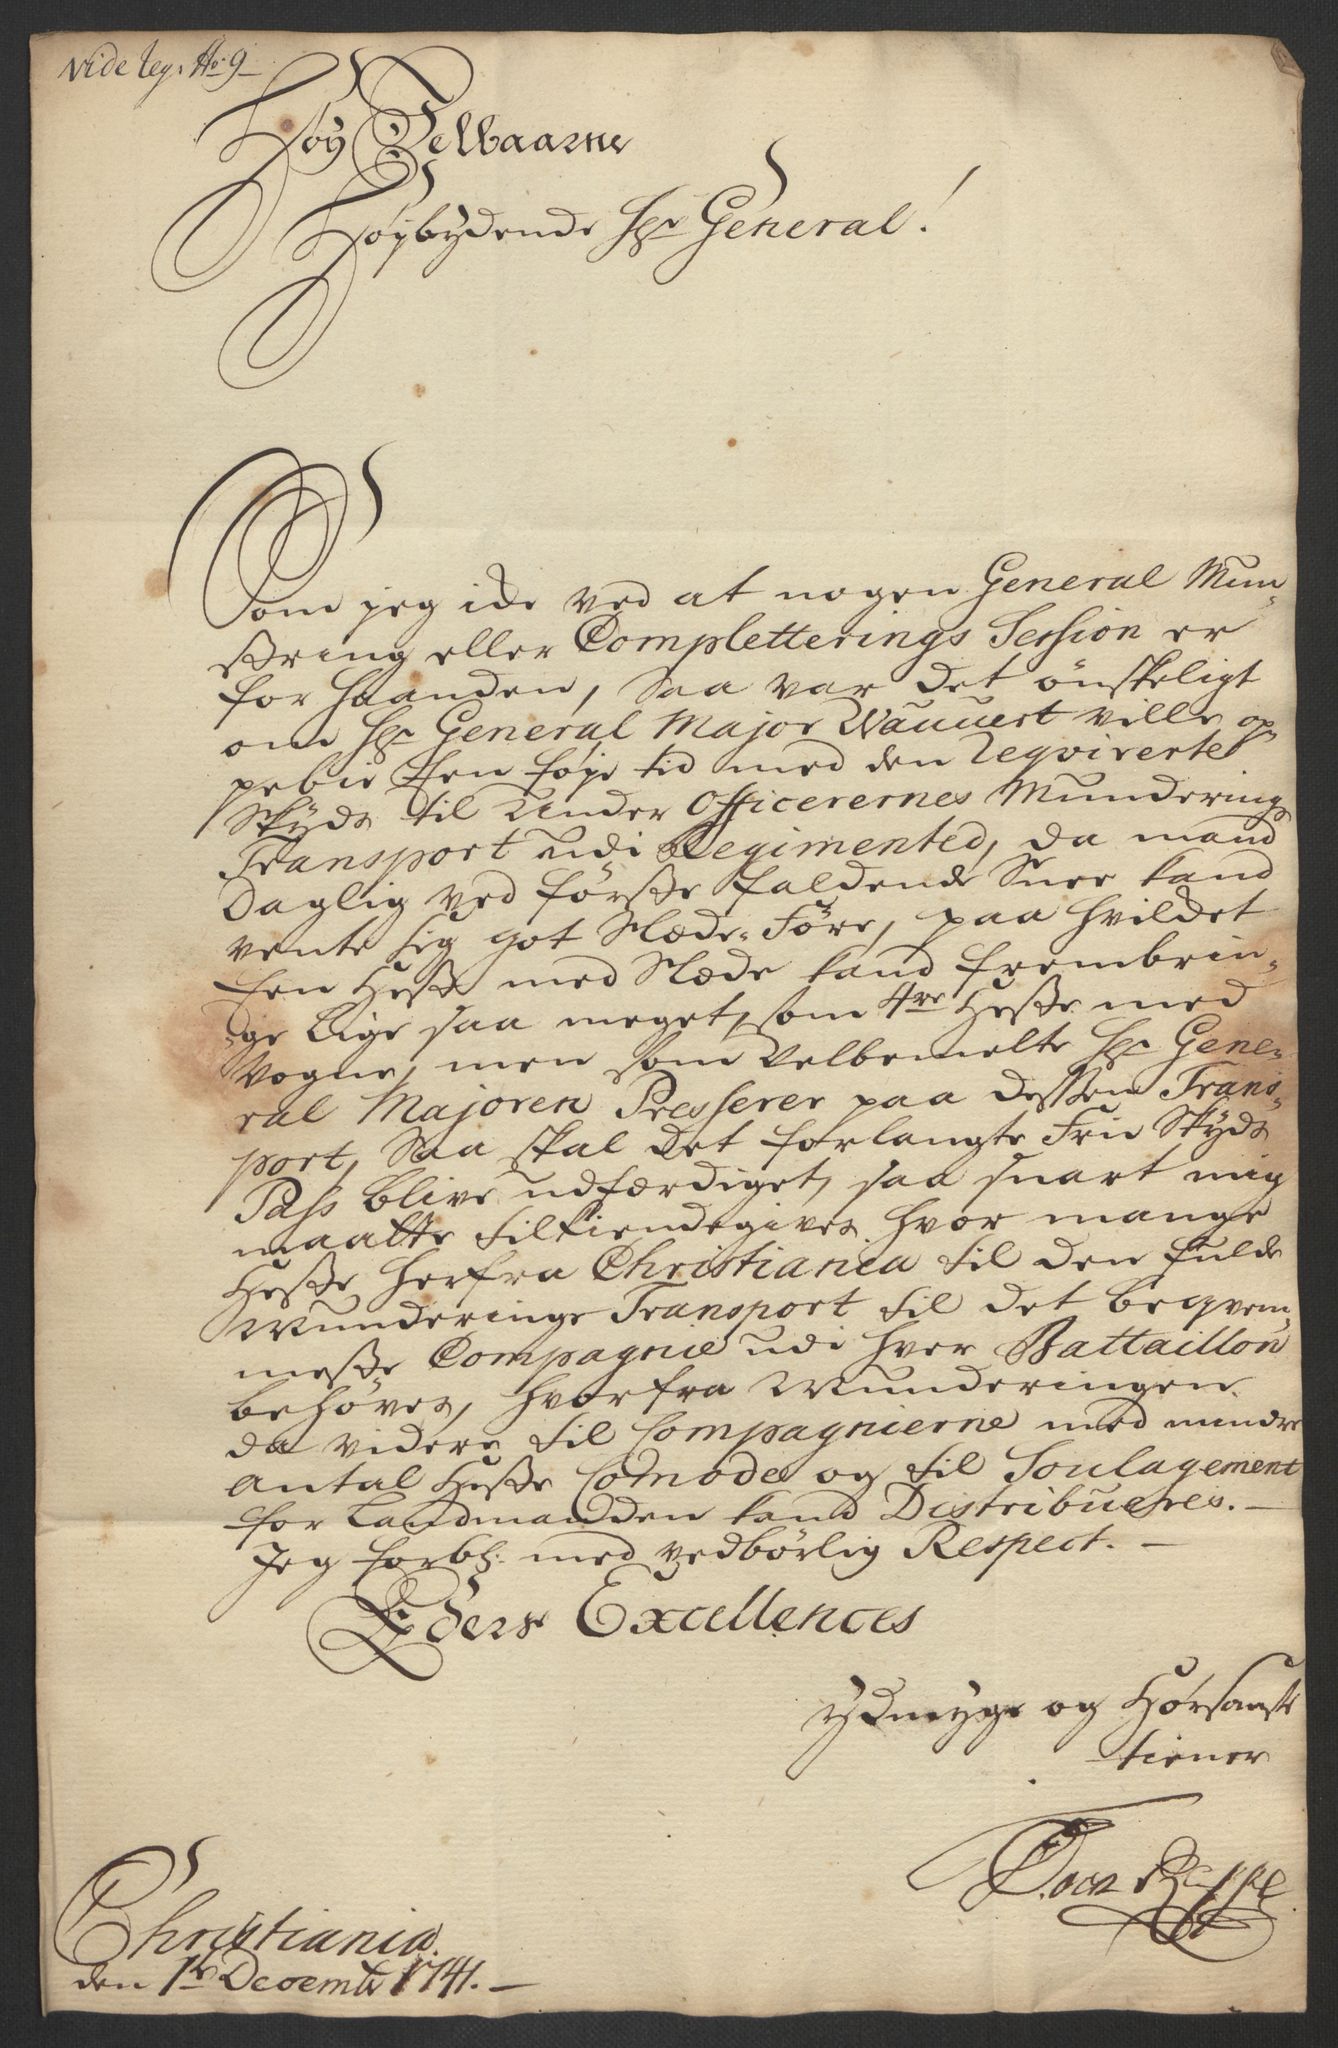 Vide reg: No 9
Høy Velbaarne
Høÿbydende Hr General!
Som jeg icke ved at nogen General Mun-
string eller Completterings Session er
for haanden, Saa var det ønskeligt
om Hr General Major Wauuert ville op-
pebie Een føje tid med den Reqvirerte
Skyds til Under Officerernes Munderings
Transport udi Regimented, da mand
Daglig ved første faldende Snee kand
vente sig got Slæde-Føre, paa hvilcket
Een Hest med Slæde kand frembrin-
ge lige saa meget, som 4re Heste med
Vogne, men som Velbemelte Hr Gene-
ral Majoren Presserer paa dessen Trans-
port, Saa skal det forlangte Frie Skyds
Pass blive udfærdiget, saa snart mig
maatte tilkiendegives hvor mange
Heste herfra Christiania til den fulde
Munderings Transport til det beqvem-
meste Compagnie udi hver Battaillon
behøves, hvorfra Munderingen
da videre til Compagnierne med mindre
Antal Heste Comode og til Soulagement
for Landmanden kand Distribueres. —
Jeg forbl: med vedbørlig Respect. —
Eders Excellences
ydmyge og Hørsamste
tiener
Christiania.
den 1te Decembr 1741. —